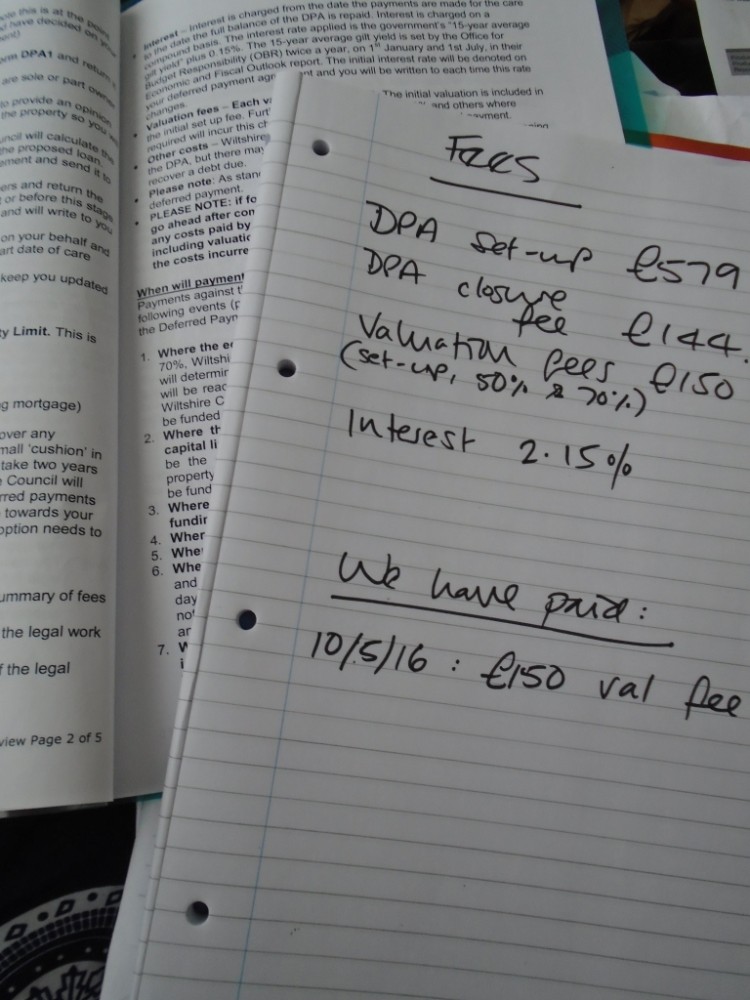 ole this is at the
have decided on
orm DPA1 and return
are sole or part owner
to provide an opinion
the property so you
uncil will calculate the
the proposed loan,
ement and send it to
ers and return the
or before this stage
and will write to you
on your behalf and
art date of care
keep you updated
ty Limit. This is
g mortgage)
over any
mall 'cushion' in
take two years
Council will
rred payments
towards your
option needs to
ummary of fees
the legal work
f the legal
view Page 2 of 5
• Interest – Interest is charged from the date the payments are made for the care
to the date the full balance of the DPA is repaid. Interest is charged on a
compound basis. The interest rate applied is the government's "15-year average
gilt yield" plus 0.15%. The 15-year average gilt yield is set by the Office for
Budget Responsibility (OBR) twice a year, on 1st January and 1st July, in their
Economic and Fiscal Outlook report. The initial interest rate will be denoted on
your deferred payment age nt and you will be written to each time this rate
changes.
• Valuation fees – Each v The initial valuation is included in
the initial set up fee. Furt and others where
required will incur this ch
• Other costs – Wiltshire
the DPA, but there may
recover a debt due.
• Please note: As stan
deferred payment.
• PLEASE NOTE: if fo
go ahead after con
any costs paid by
including valuatio
the costs incurre
When will payment
Payments against t
following events (p
the Deferred Paym
1. Where the eq
70%, Wiltshi
will determin
will be reac
Wiltshire C
be funded
2. Where th
capital li
be the
property
be fund
3. Where
fundin
4. Wher
5. Whe
6. Whe
and
day
no
ar
7. W
i
Fees
DPA set-up £579
DPA closure
fee £144.
Valuation fees £150
(set-up, 50% & 70%)
Interest 2.15%
We have paid:
10/5/16 : £150 val fee